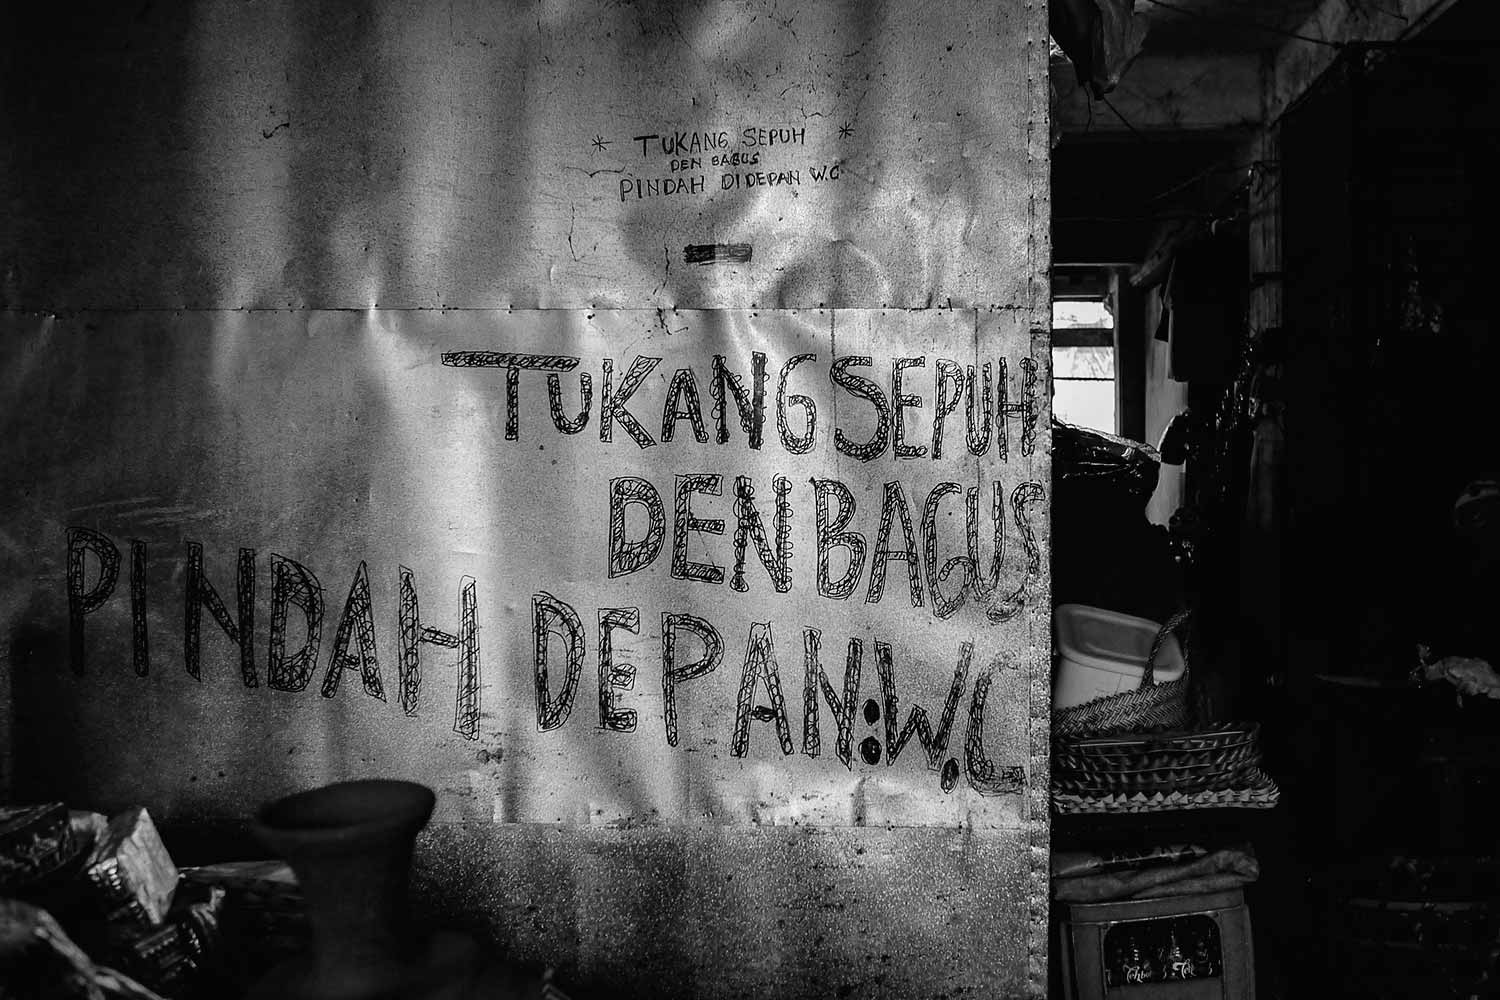 * TUKANG SEPUH *
DEN BAGUS
PINDAH DIDEPAN W.C
TUKANG SEPUH
DEN BAGUS
PINDAH DEPAN:W.C